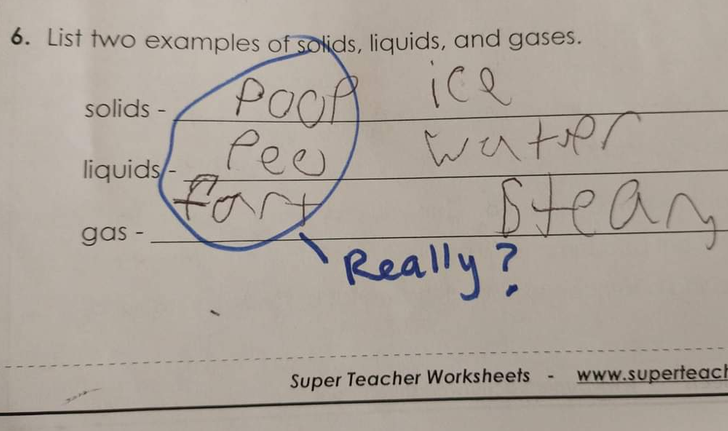 6. List two examples of solids, liquids, and gases.
solids - POOP ice
liquids - Pee water
gas - fart Steam
Really?
Super Teacher Worksheets - www.superteach